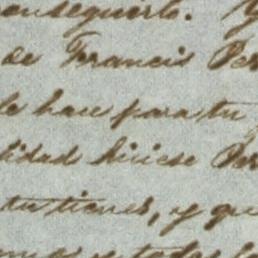 enseguirlo. Y
de Francis Per
le hace para tu
lidad hiciese Per
tu tienes, y que